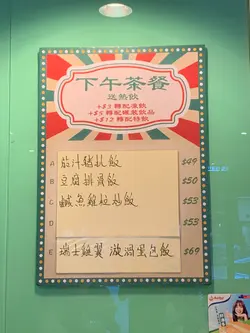 下午茶餐
送熱飲
+$3 轉配凍飲
+$5 轉配罐裝飲品
+$12 轉配特飲
A 茄汁豬扒飯 $49
B 豆腐斑腩飯 $50
C 鹹魚雞粒炒飯 $53
D $53
E 瑞士雞翼 漩渦蛋包飯 $69